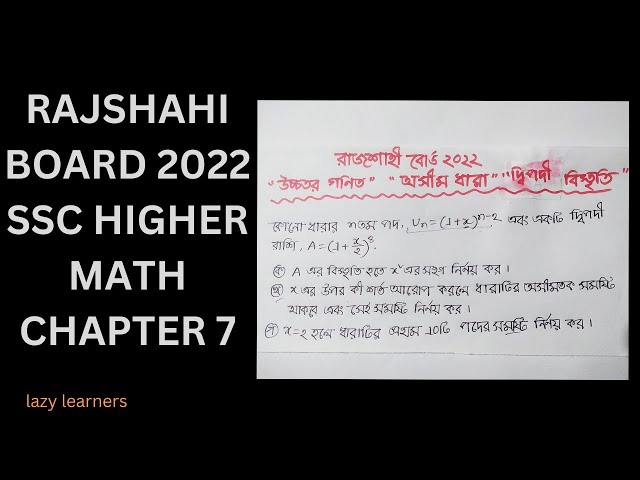 RAJSHAHI
BOARD 2022
SSC HIGHER
MATH
CHAPTER 7
lazy learners
রাজশাহী বোর্ড ২০২২
"উচ্চতর গনিত" "অসীম ধারা" "দ্বিপদী বিস্তৃতি"
কোনো ধারার nতম পদ, Uₙ = (1+x)ⁿ⁻² এবং একটি দ্বিপদী
রাশি, A = (1 + x/2)⁸.
ক) A এর বিস্তৃতি হতে x⁴ এর সহগ নির্ণয় কর।
খ) x এর উপর কী শর্ত আরোপ করলে ধারাটির অসীমতক সমষ্টি
থাকবে এবং সেই সমষ্টি নির্ণয় কর।
গ) x=2 হলে ধারাটির প্রথম 10টি পদের সমষ্টি নির্ণয় কর।